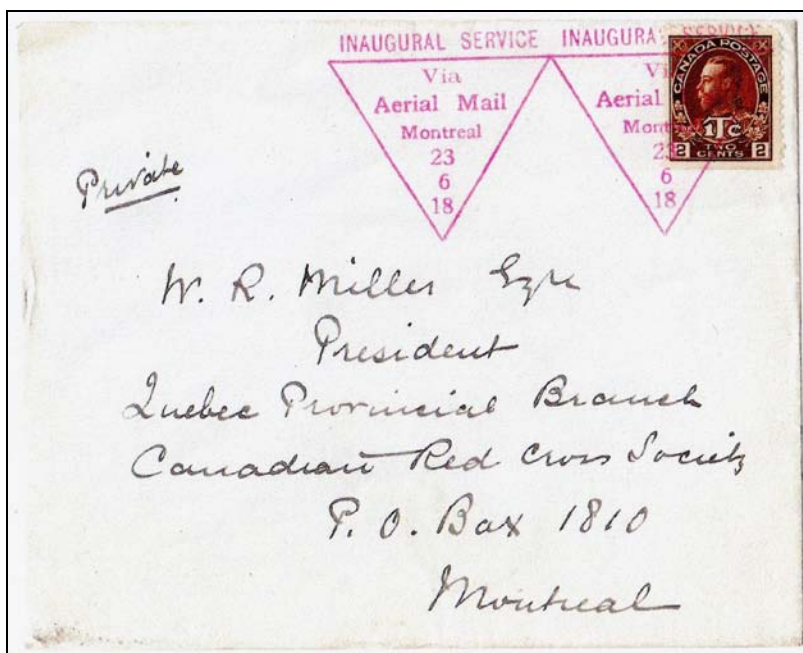 INAUGURAL SERVICE INAUGURA SERVICE
Via
Aerial Mail
Montreal
23
6
18
Vi
Aerial
Mont
23
6
18
CANADA POSTAGE
1Tc
2 TWO CENTS 2
Private
W. R. Miller Esqre
President
Quebec Provincial Branch
Canadian Red Cross Society
P. O. Box 1810
Montreal